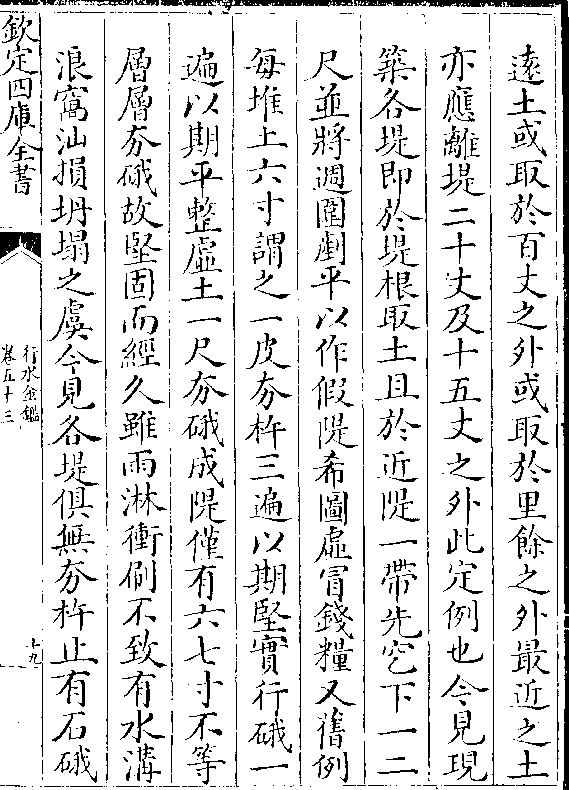 遠土或取於百丈之外或取於里餘之外最近之土
亦應離堤二十丈及十五丈之外此定例也今見現
築各堤即於堤根取土且於近隄一帶先空下一二
尺並將週圍劃平以作假隄希圖虛冒錢糧又舊例
每堆土六寸謂之一皮夯杵三遍以期堅實行硪一
遍以期平整虛土一尺夯硪成隄僅有六七寸不等
層層夯硪故堅固而經久雖雨淋衝刷不致有水溝
浪窩汕損坍塌之虞今見各堤俱無夯杵止有石硪
欽定四庫全書
行水金鑑
卷五十三
十九